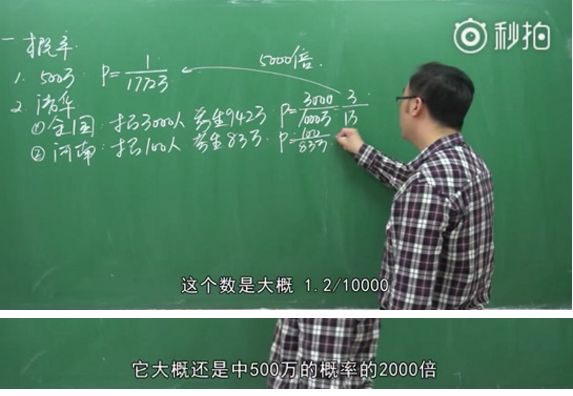 秒拍
一 概率
1. 500万 P=1/1772万 5000倍
2. 清华
① 全国:招3000人 考生942万 P=3000/1000万 3/1万
② 河南:招100人 考生83万 P=100/83万
这个数是大概 1.2/10000
它大概还是中500万的概率的2000倍